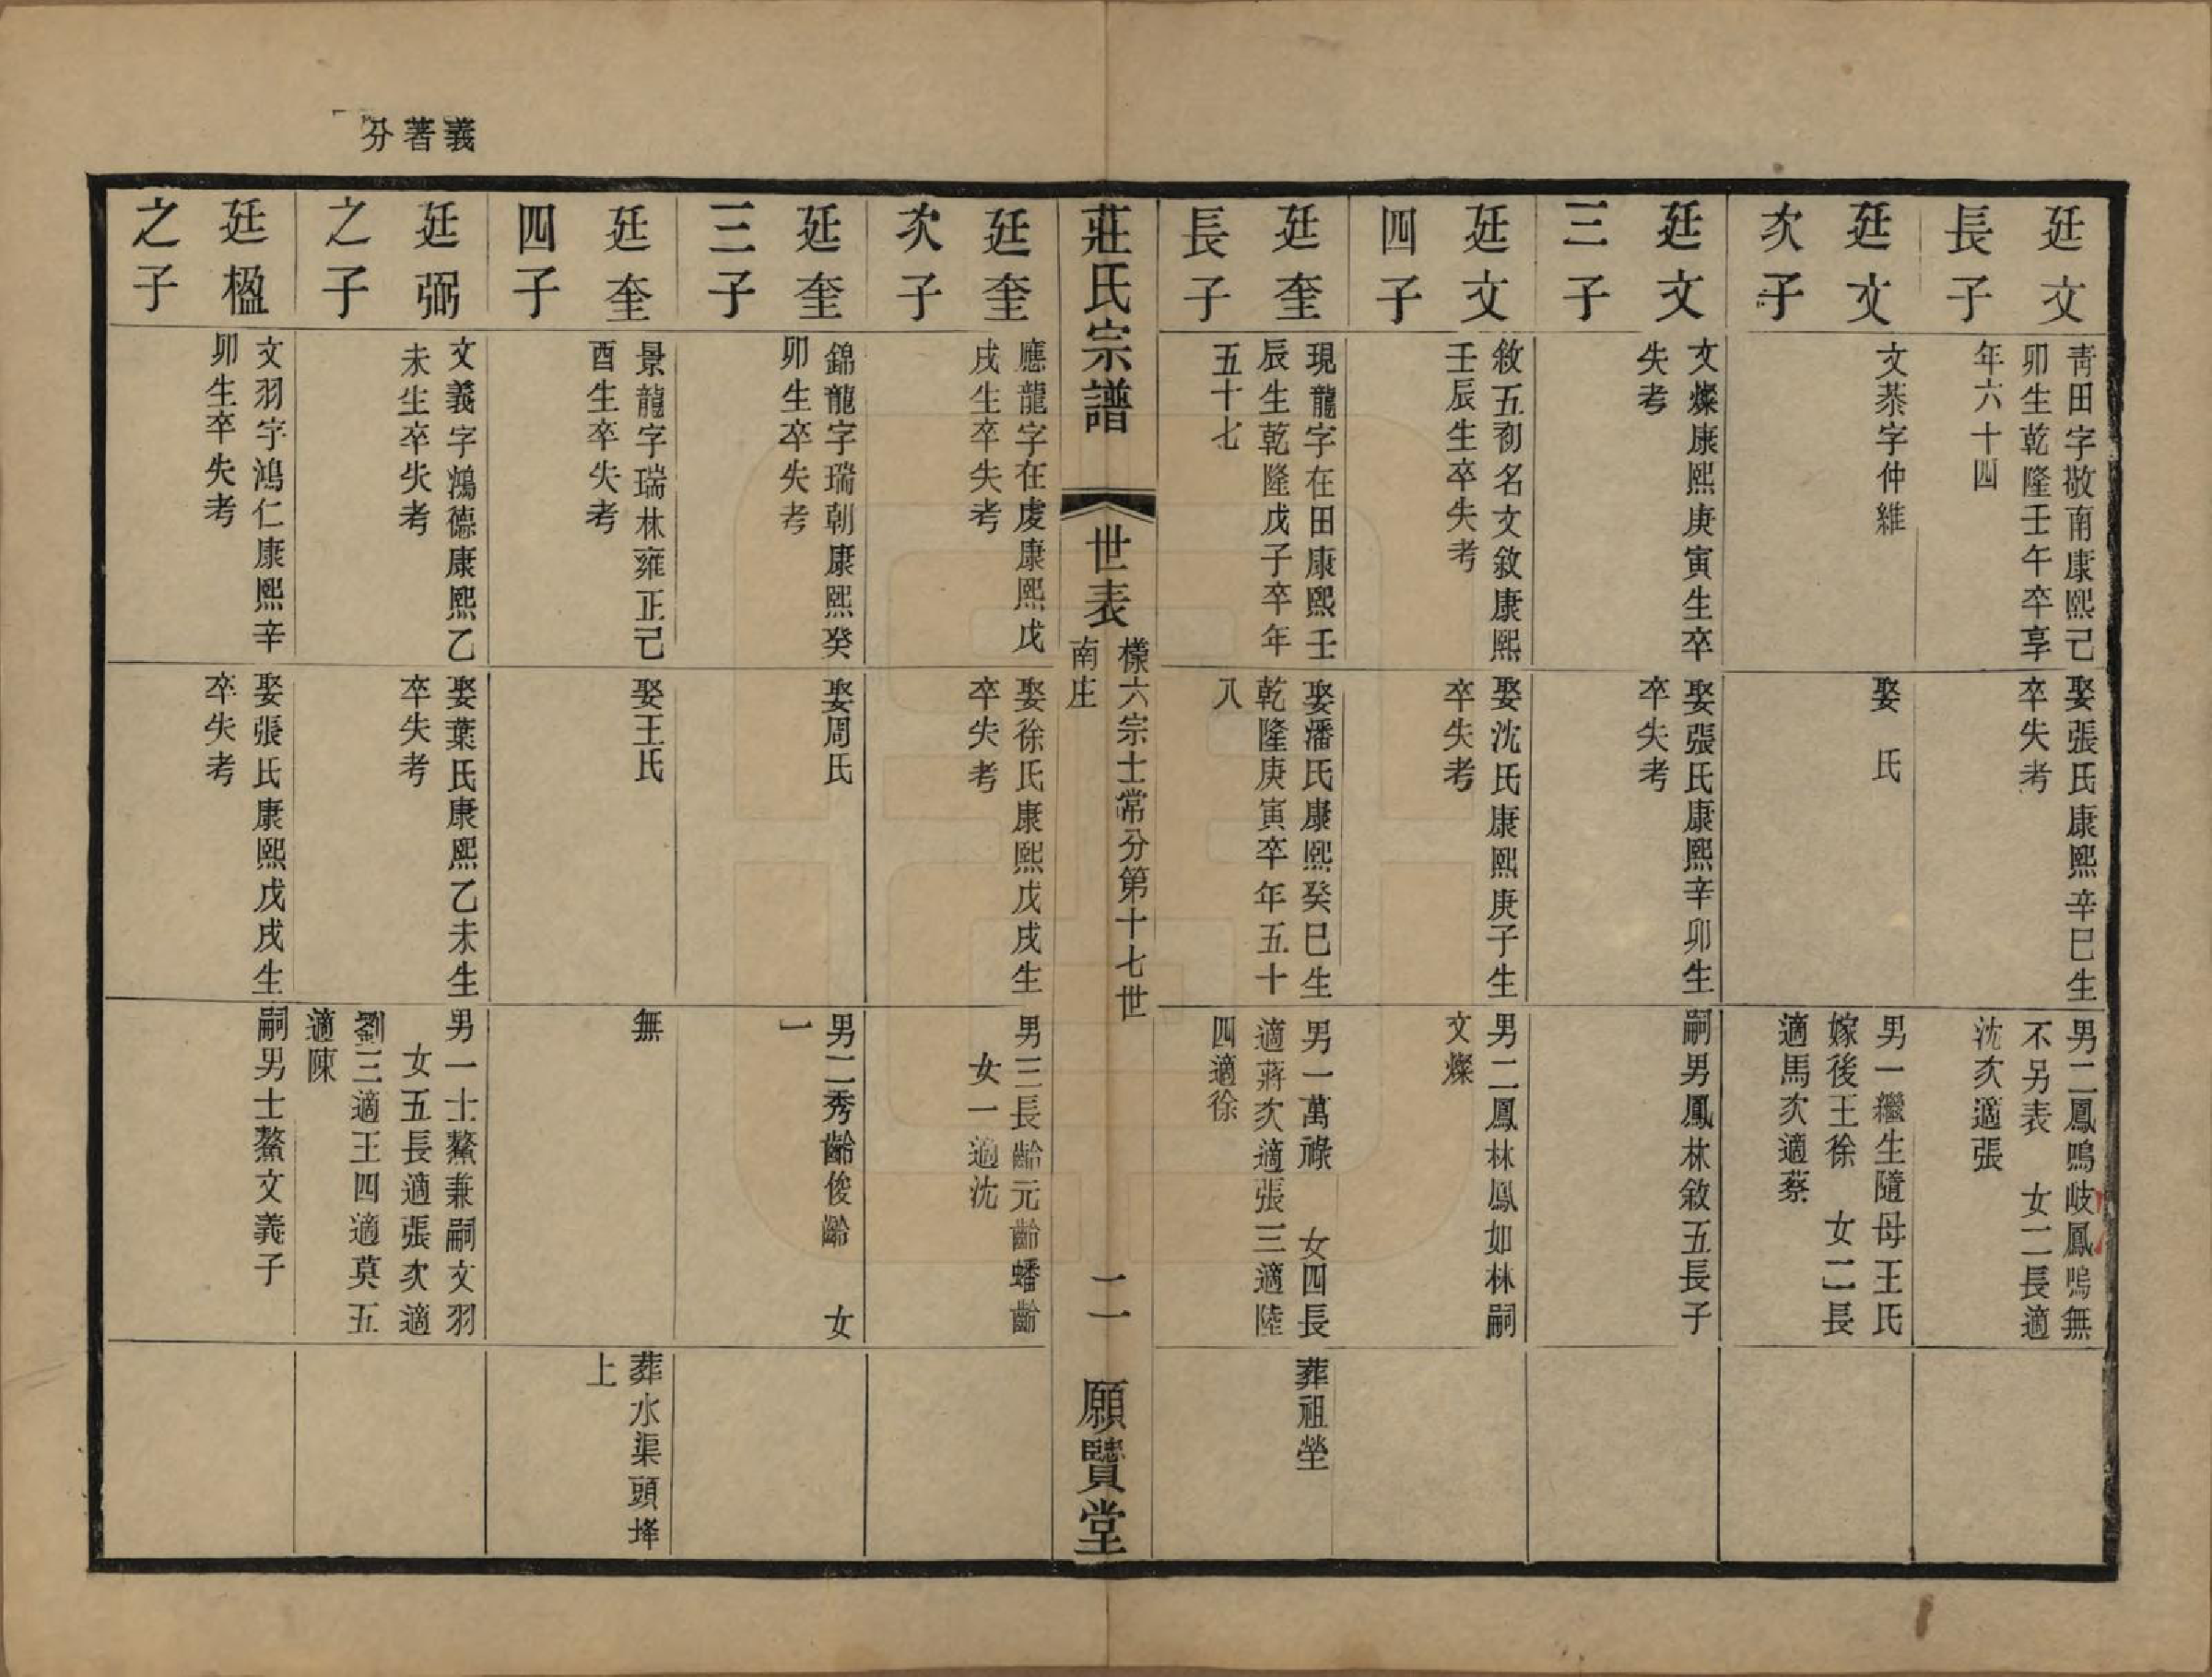 廷文
長子
靑田字敬南康熙己
卯生乾隆壬午卒享
年六十四
娶張氏康熙辛巳生
卒失考
男二鳳鳴岐鳳鳴無
不另表　女二長適
沈次適張
廷文
次子
文恭字仲維
娶　氏
男一繼生隨母王氏
嫁後王徐　女二長
適馬次適蔡
廷文
三子
文燦康熙庚寅生卒
失考
娶張氏康熙辛卯生
卒失考
嗣男鳳林敘五長子
廷文
四子
敘五初名文敘康熙
壬辰生卒失考
娶沈氏康熙庚子生
卒失考
男二鳳林鳳如林嗣
文燦
廷奎
長子
現龍字在田康熙壬
辰生乾隆戊子卒年
五十七
娶潘氏康熙癸巳生
乾隆庚寅卒年五十
八
男一萬祿　女四長
適蔣次適張三適陸
四適徐
葬祖塋
莊氏宗譜
世表
樣六宗士常分第十七世
南庄
二一
願賢堂
廷奎
次子
應龍字在虔康熙戊
戌生卒失考
娶徐氏康熙戊戌生
卒失考
男三長齡元齡蟠齡
女一適沈
廷奎
三子
錦龍字瑞朝康熙癸
卯生卒失考
娶周氏
男二秀齡俊齡　女
一
廷奎
四子
景龍字瑞林雍正己
酉生卒失考
娶王氏
無
葬水渠頭埄
上
義著分
廷弼
之子
文義字鴻德康熙乙
未生卒失考
娶葉氏康熙乙未生
卒失考
男一士鰲兼嗣文羽
女五長適張次適
劉三適王四適莫五
適陳
廷楹
之子
文羽字鴻仁康熙辛
卯生卒失考
娶張氏康熙戊戌生
卒失考
嗣男士鰲文義子